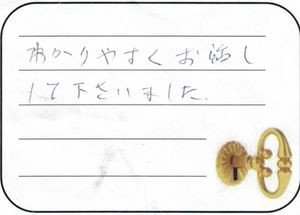 わかりやすくお話し
して下さいました.